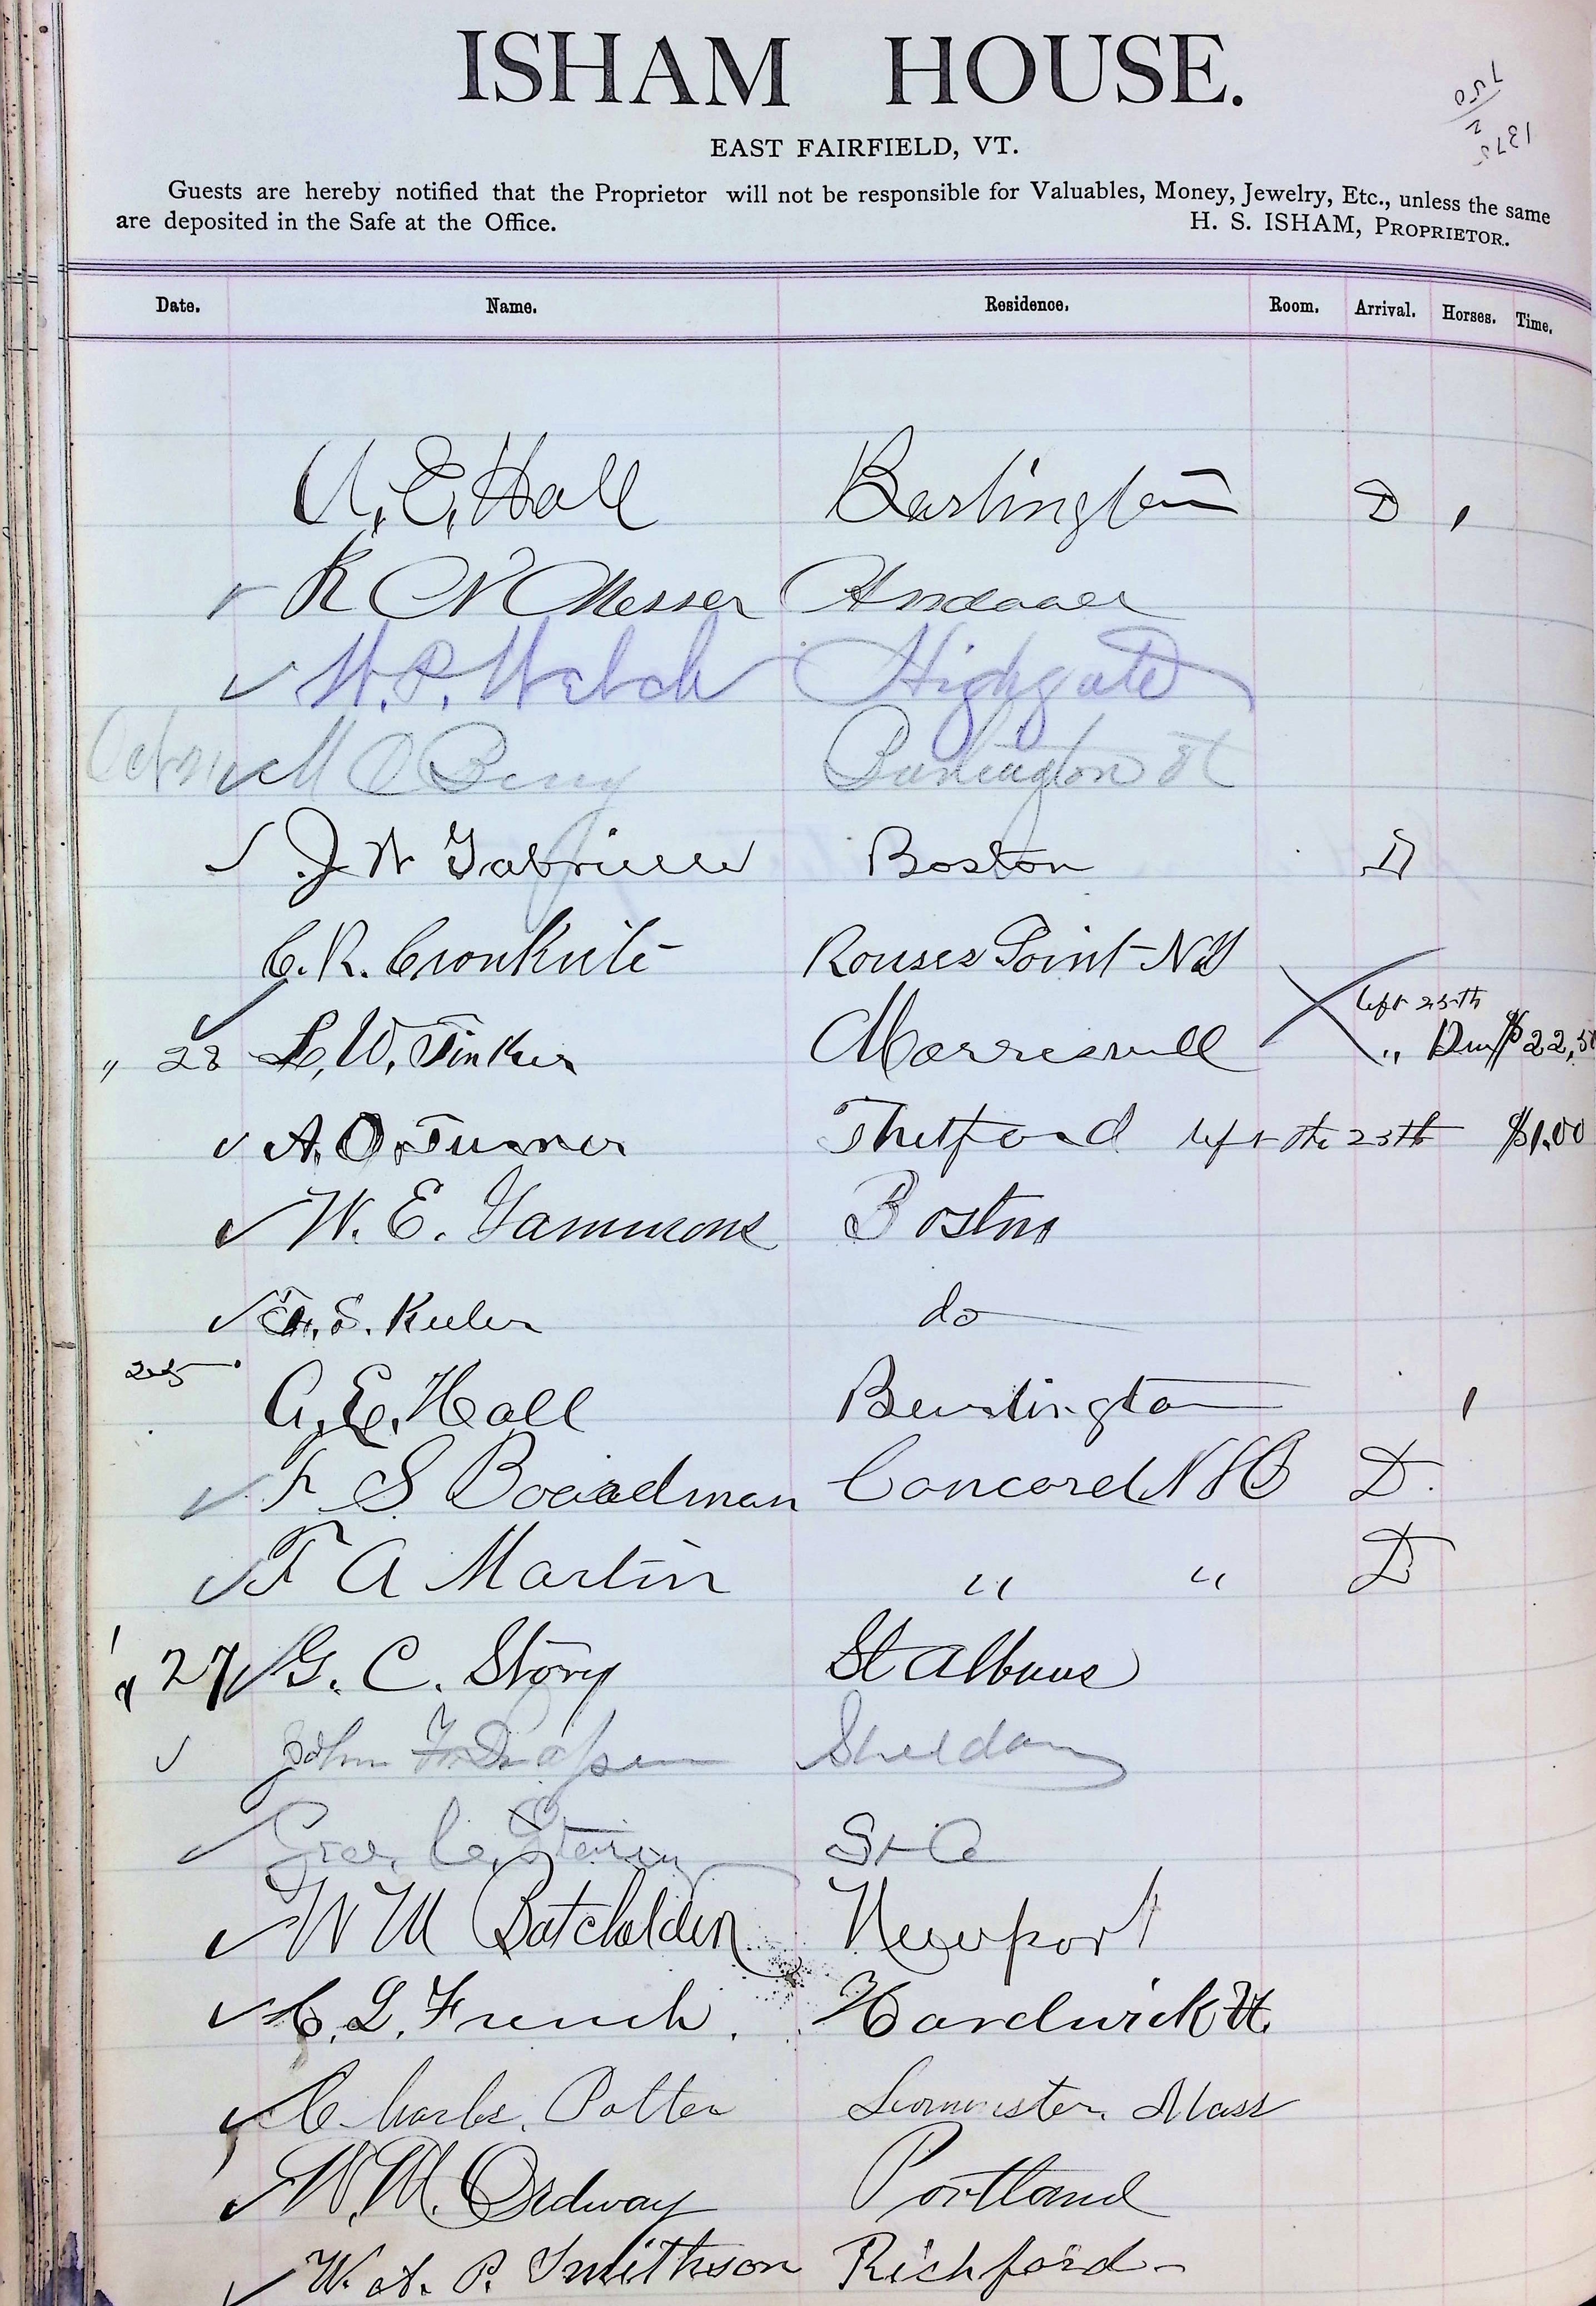 ISHAM HOUSE.
EAST FAIRFIELD, VT.
Guests are hereby notified that the Proprietor will not be responsible for Valuables, Money, Jewelry, Etc., unless the same
are deposited in the Safe at the Office. H. S. ISHAM, PROPRIETOR.
Date. Name. Residence. Room. Arrival. Horses. Time.
A. E. Hall Burlington D
R N Messer Andover
W. P. Welch Highgate
M O Berry Burlington Vt
J W Gabrielle Boston D
C. R. Cronkrite Rouses Point NY
left 25th
" 28 L. W. Tinker Morrisvill " Due $22,50
A. O. Turner Thetford left the 25th $1.00
W. E. Gammons Boston
S. Keeler do
A. E. Hall Burlington
F S Boardman Concord NH D.
F A Martin " " D
" 27 G. C. Story St Albans
John F. Sheldon
Geo. C. Story St A
W M Batcheldin Newport
C. L. French. Hardwick Vt.
Charles. Potter Leominster. Mass
W. M. Ordway Portland
W. A. P. Smithson Richford